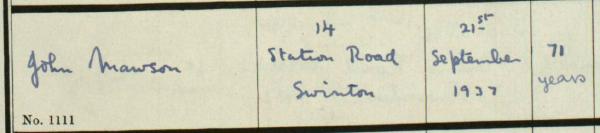 John Mawson
14
Station Road
Swinton
21st
September
1937
71
years
No. 1111